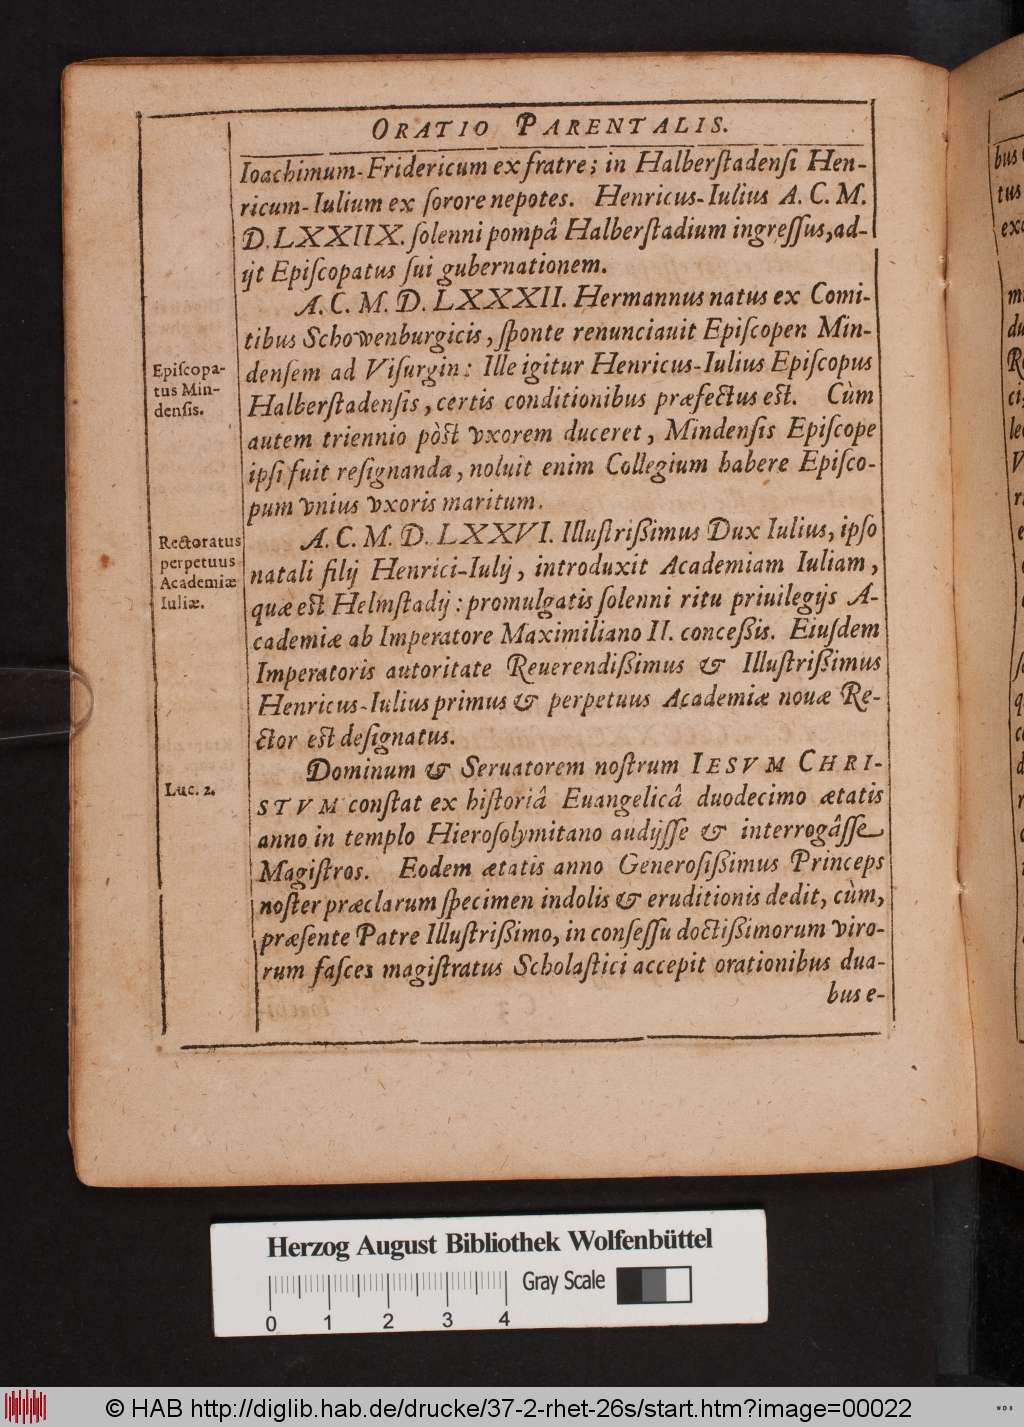 ORATIO PARENTALIS.
Ioachimum-Fridericum ex fratre; in Halberſtadenſi Hen-
ricum-Iulium ex ſorore nepotes. Henricus-Iulius A. C. M.
D. LXXIIX. ſolenni pompâ Halberſtadium ingreſſus, ad-
ijt Epiſcopatus ſui gubernationem.
A. C. M. D. LXXXII. Hermannus natus ex Comi-
tibus Schowenburgicis, ſponte renunciauit Epiſcopen Min-
Epiſcopa-
tus Min-
denſis.
denſem ad Viſurgin: Ille igitur Henricus-Iulius Epiſcopus
Halberſtadenſis, certis conditionibus præfectus est. Cùm
autem triennio pòst vxorem duceret, Mindenſis Epiſcope
ipſi fuit reſignanda, noluit enim Collegium habere Epiſco-
pum vnius vxoris maritum.
Rectoratus
perpetuus
Academiæ
Iuliæ.
A. C. M. D. LXXVI. Illuſtrißimus Dux Iulius, ipſo
natali filij Henrici-Iulij, introduxit Academiam Iuliam,
quæ est Helmſtadij: promulgatis ſolenni ritu priuilegijs A-
cademiæ ab Imperatore Maximiliano II. conceßis. Eiuſdem
Imperatoris autoritate Reuerendißimus & Illuſtrißimus
Henricus-Iulius primus & perpetuus Academiæ nouæ Re-
ctor est deſignatus.
Luc. 2.
Dominum & Seruatorem noſtrum IESVM CHRI-
STVM conſtat ex hiſtoriâ Euangelicâ duodecimo ætatis
anno in templo Hieroſolymitano audijſſe & interrogâſſe
Magiſtros. Eodem ætatis anno Generoſißimus Princeps
noſter præclarum ſpecimen indolis & eruditionis dedit, cùm,
præſente Patre Illuſtrißimo, in conſeſſu doctißimorum viro-
rum faſces magiſtratus Scholaſtici accepit orationibus dua-
bus e-
Herzog August Bibliothek Wolfenbüttel
0 1 2 3 4
Gray Scale
© HAB http://diglib.hab.de/drucke/37-2-rhet-26s/start.htm?image=00022